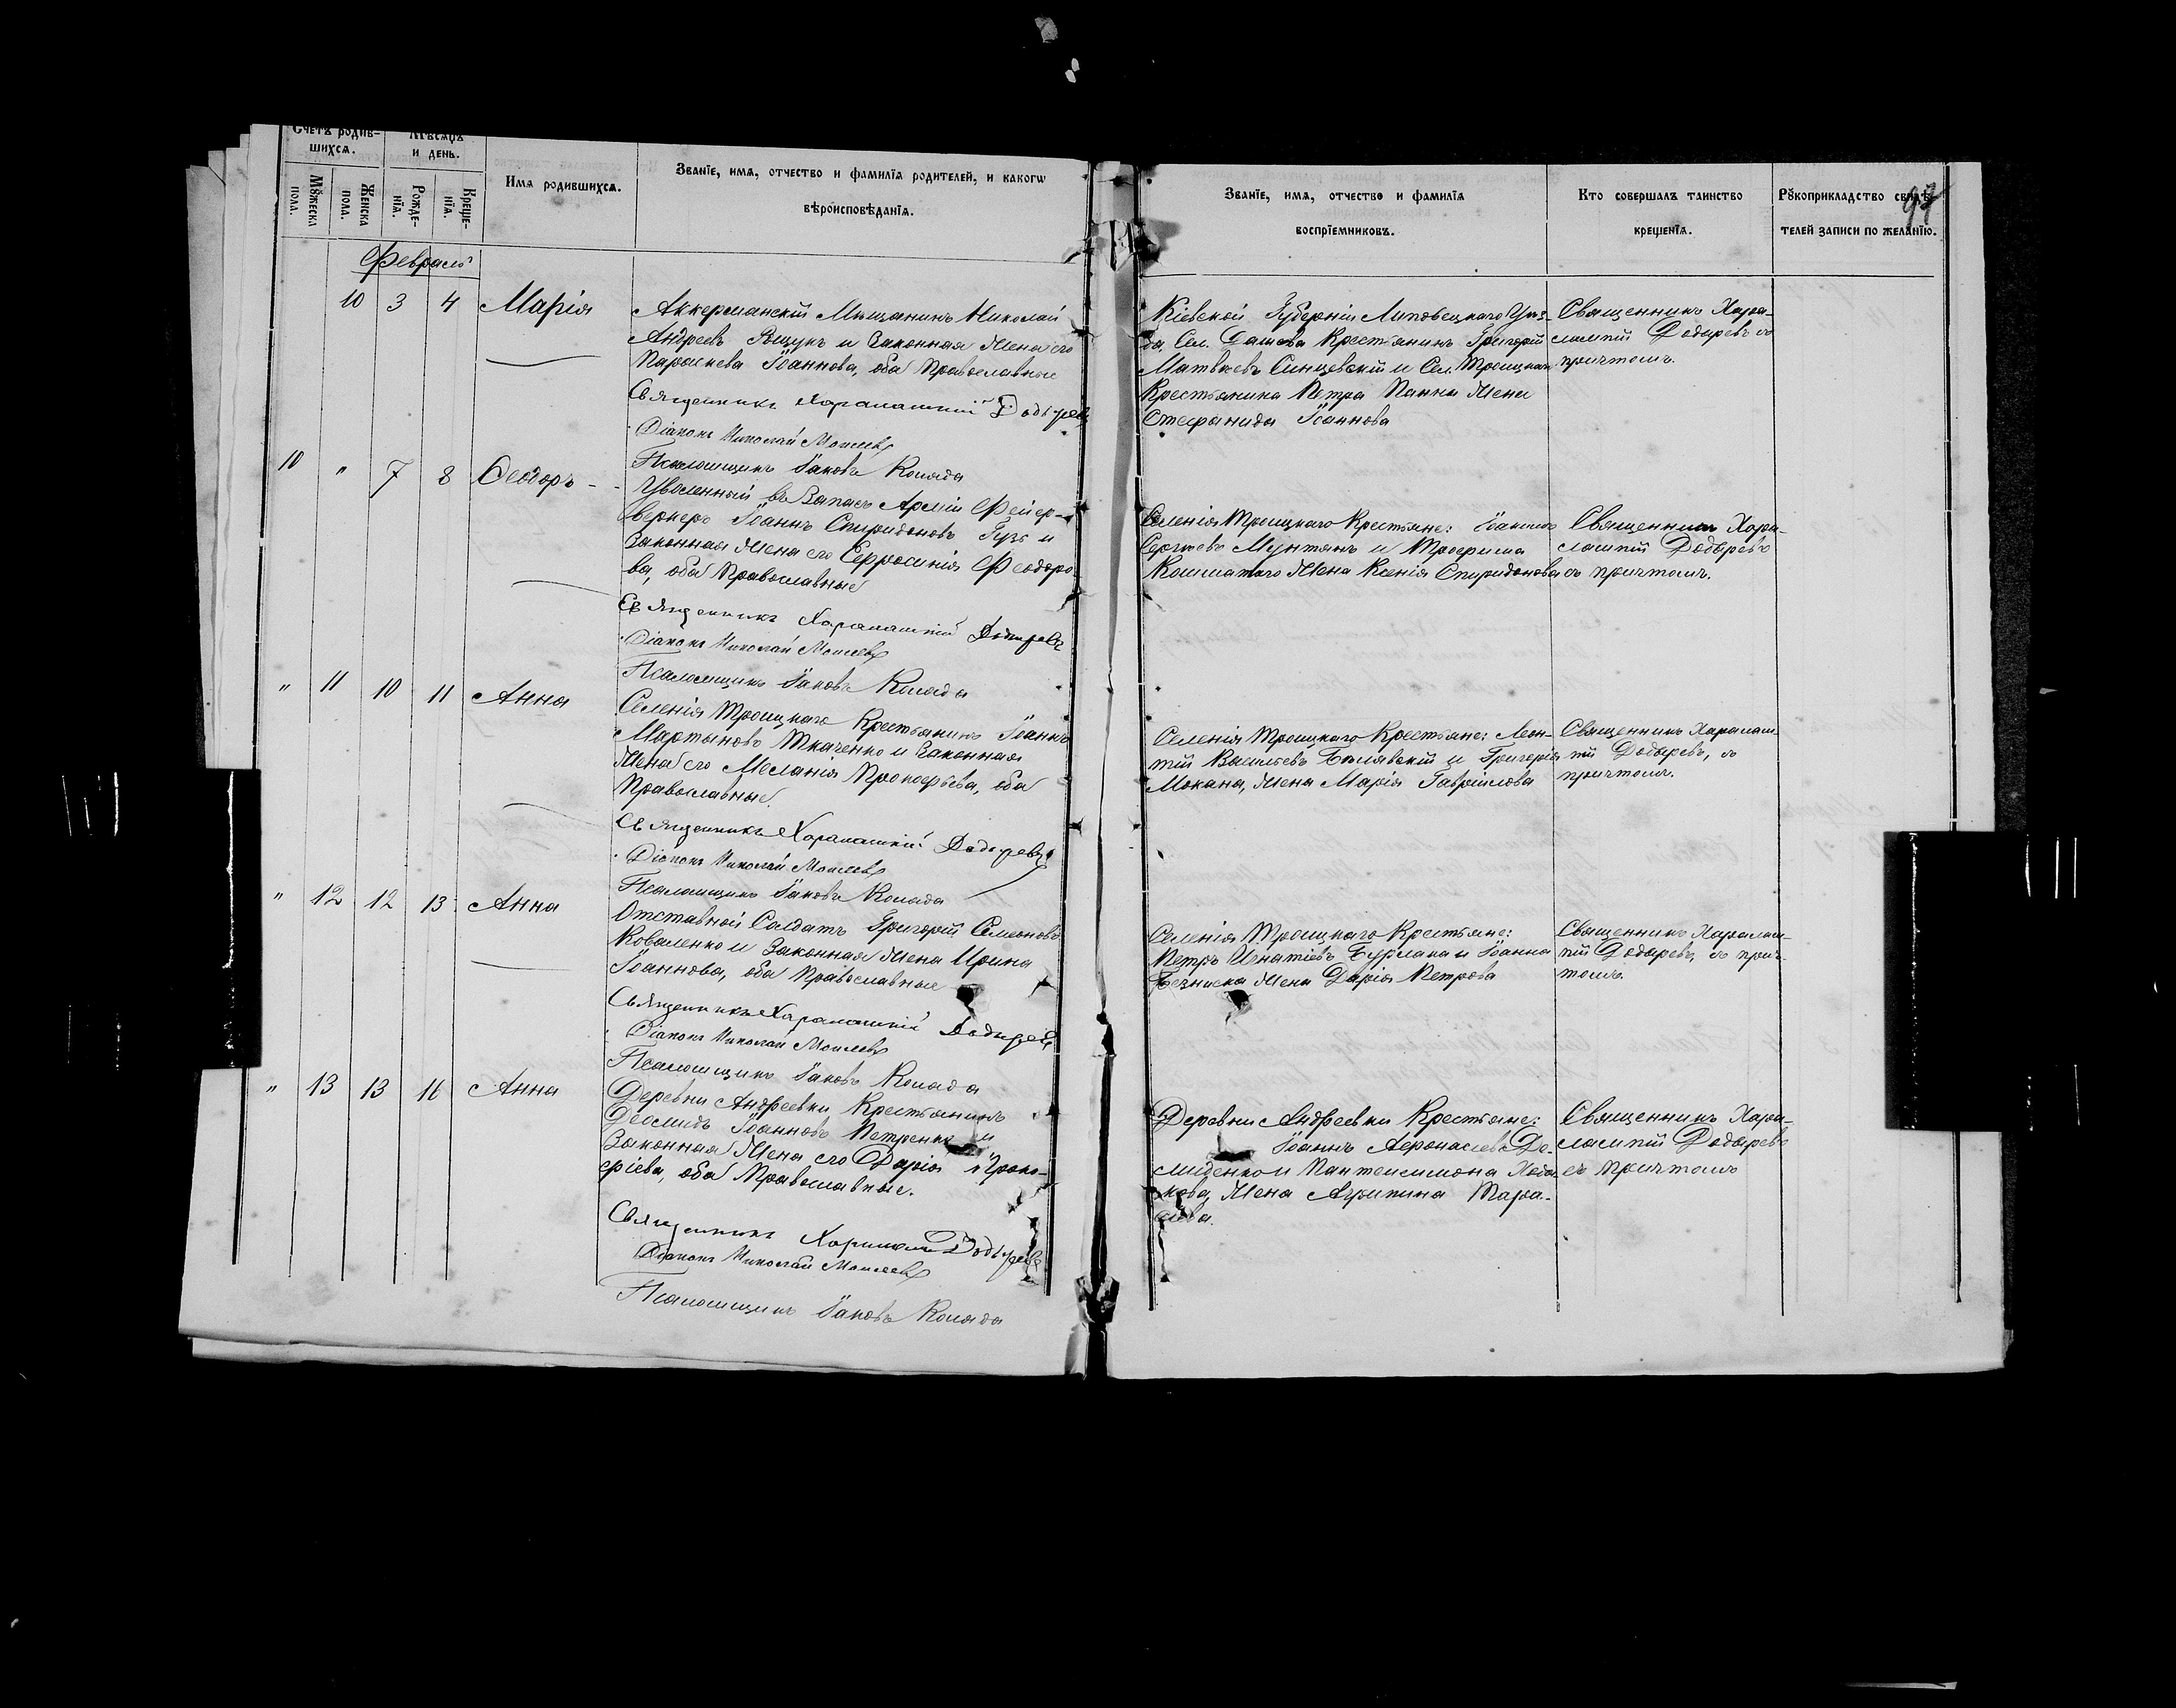 Счетъ родив-
шихсѧ.
Мѣсѧцъ
и день.
Мꙋжеска
пола.
Женска
пола.
Рожде-
нїѧ.
Креще-
нїѧ.
Имѧ родившихсѧ.
Званїе, имѧ, отчество и фамилїѧ родителей, и какогѡ
вѣроисповѣданїѧ.
Званїе, имѧ, отчество и фамилїѧ
воспрїемниковъ.
Кто совершалъ таинство
крещенїѧ.
Рꙋкоприкладство свидѣ-
телей записи по желанїю.
Февраль
10 3 4 Марія
Аккерманскій Мѣщанинъ Николай
Андреевъ Рощукъ и Законная Жена его
Параскева Іоаннова, оба Православные
Священникъ Харалампій Додыревъ
Діаконъ Николай
Псаломщикъ Іаковъ
Кіевской Губерніи Липовецкаго Уѣз-
да, Сел. Дашева Крестьянинъ Григорій
Матвѣевъ Синцевскій и Сел. Троицкаго
Крестьянина Петра Жена
Стефанида Іоаннова
Священникъ Хара-
лампій Додыревъ съ
причтомъ.
10 " 7 8 Ѳеодоръ -
Уволенный въ Запасъ Арміи Фейер-
веркеръ Іоаннъ Спиридоновъ Гузъ и
Законная Жена его Евфросинія Феодоро-
ва, оба Православные
Священникъ Харалампій Додыревъ
Діаконъ Николай
Псаломщикъ Іаковъ
Селенія Троицкаго Крестьяне:
Сергѣевъ Мунтянъ и Трофима
Жена Ксенія Спиридонова
Священникъ Хара-
лампій Додыревъ
съ причтомъ.
" 11 10 11 Анна
Селенія Троицкаго Крестьянинъ Іоаннъ
Мартыновъ Ткаченко и Законная
Жена его Меланія Прокофьева, оба
Православные.
Священникъ Харалампій Додыревъ
Діаконъ Николай
Псаломщикъ Іаковъ
Селенія Троицкаго Крестьяне: Леон-
тій Васильевъ Билявскій и Григорія
Мокана, Жена Марія Гавріилова
Священникъ Харалам-
пій Додыревъ, съ
причтомъ.
" 12 12 13 Анна
Отставной Солдатъ Григорій Семеоновъ
Коваленко и Законная Жена Ирина
Іоаннова, оба Православные
Священникъ Харалампій Додыревъ
Діаконъ Николай
Псаломщикъ Іаковъ
Селенія Троицкаго Крестьяне:
Петръ Игнатіевъ Бурлака и Іоанна
Жена Дарія Петрова
Священникъ Харалам-
пій Додыревъ, съ прич-
томъ.
" 13 13 16 Анна
Деревни Андреевки Крестьянинъ
Іоанновъ Петренко и
Законная Жена его Дарія Проко-
фіева, оба Православные.
Священникъ Харалампій Додыревъ
Діаконъ Николай
Псаломщикъ Іаковъ
Деревни Андреевки Крестьяне:
Іоаннъ Афонасьевъ Де-
миденко и Пантелимона
Жена Агрипина Тара-
сіева.
Священникъ Хара-
лампій Додыревъ
съ причтомъ